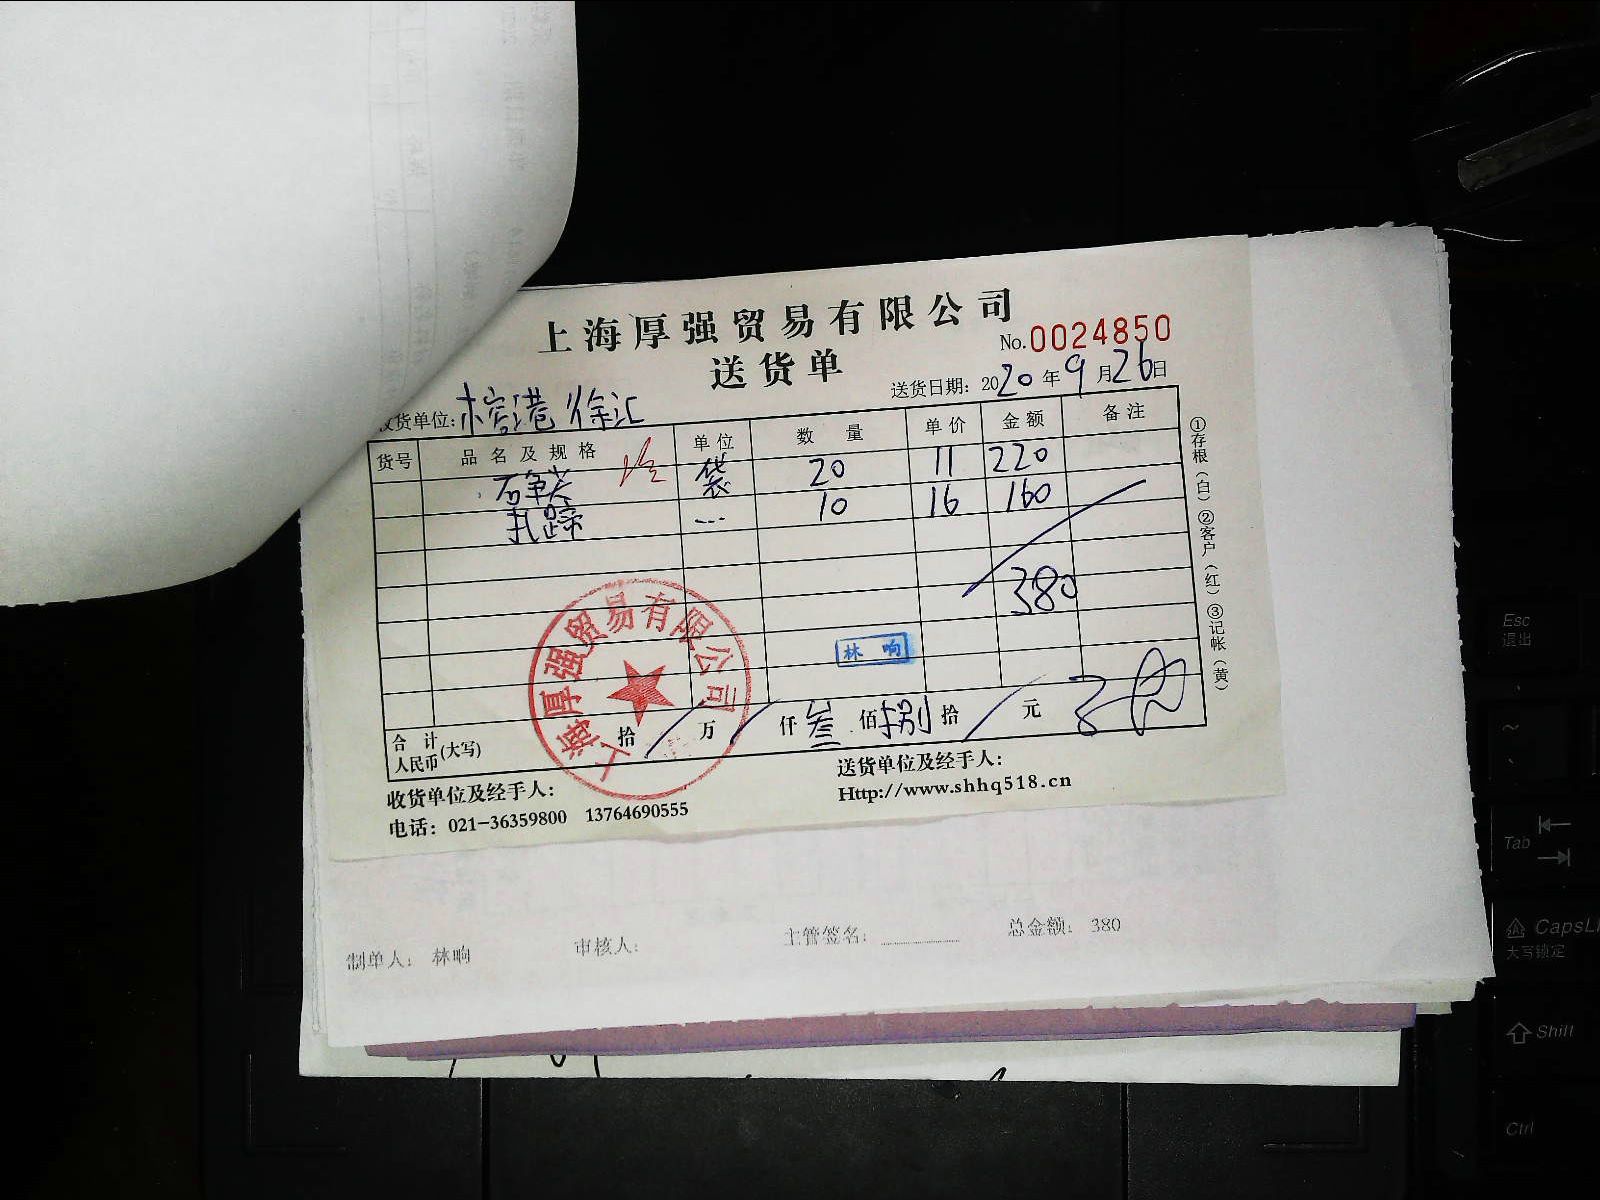 上海厚强贸易有限公司
No.0024850
送货单
送货日期：2020年9月26日
收货单位：榕港 徐汇
货号 品名及规格 单位 数量 单价 金额 备注
袋 20 11 220
10 16 160
380
林响
上海厚强贸易有限公司
合计人民币(大写) 拾 万 仟 叁 佰 捌 拾 元
收货单位及经手人：
送货单位及经手人：
电话：021-36359800 13764690555
Http://www.shhq518.cn
①存根（白）②客户（红）③记帐（黄）
制单人： 林响 审核人： 主管签名： 总金额： 380
Esc
退出
~
Tab
CapsL
大写锁定
Shift
Ctrl